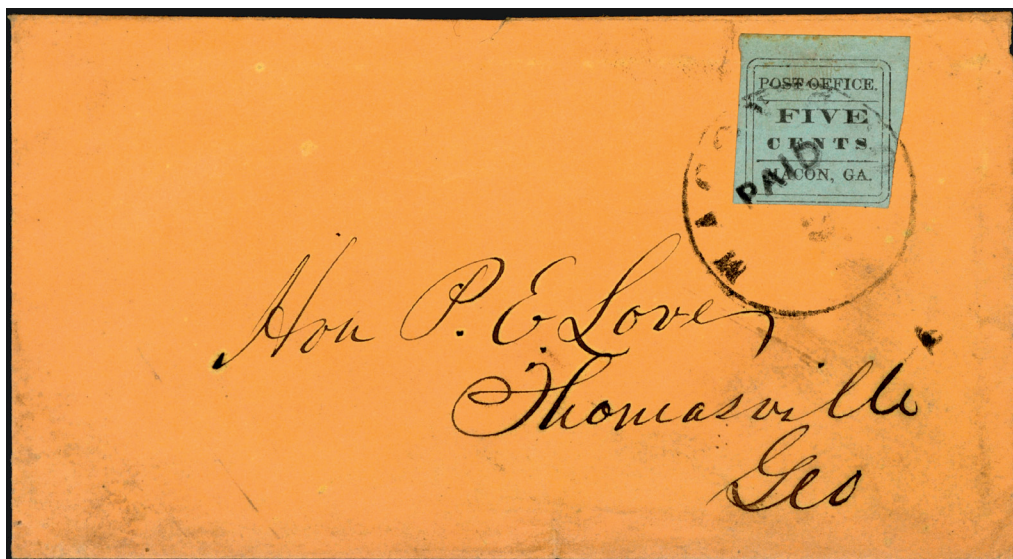 POST OFFICE.
FIVE
CENTS.
MACON, GA.
PAID
MACON
Hon P. E. Love
Thomasville
Geo